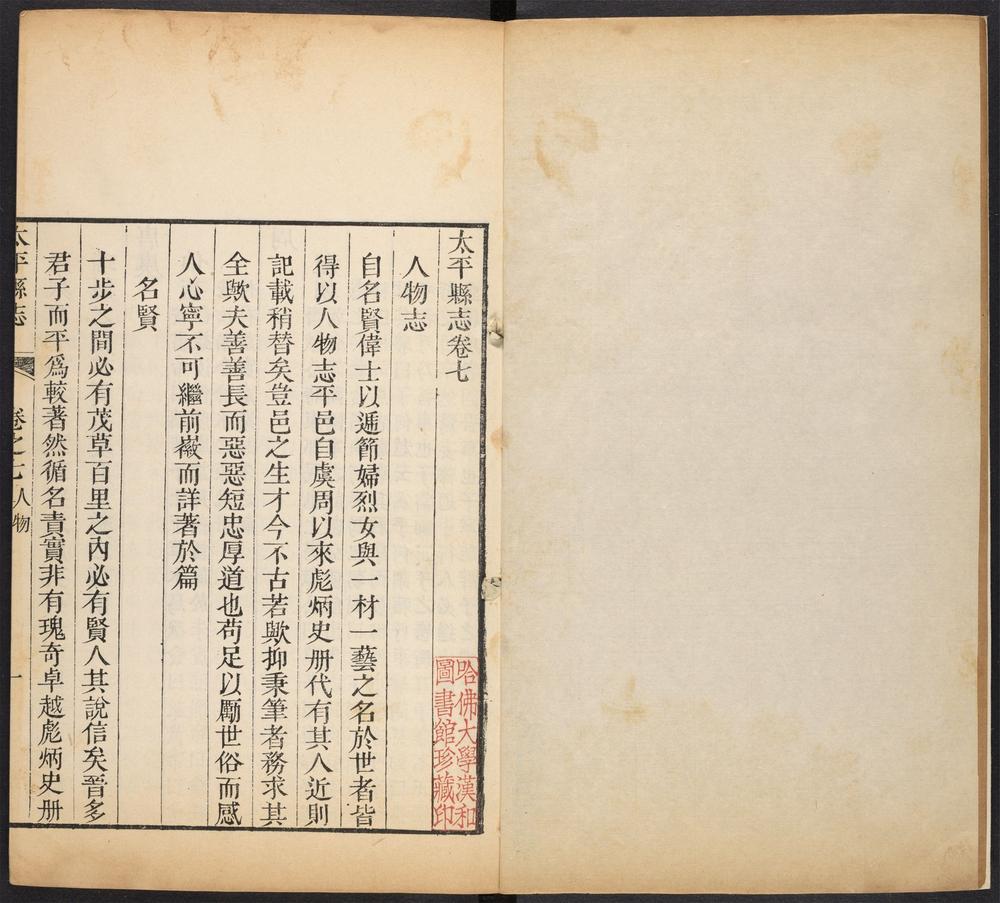 太平縣志卷七
人物志
自名賢偉士以逓節婦烈女與一材一藝之名於世者皆
得以人物志平邑自虞周以來彪炳史册代有其人近則
記載稍替矣豈邑之生才今不古若歟抑秉筆者務求其
全歟夫善善長而惡惡短忠厚道也苟足以勵世俗而感
人心寧不可繼前徽而詳著於篇
名賢
十步之間必有茂草百里之內必有賢人其說信矣晉多
君子而平爲較著然循名責實非有瑰奇卓越彪炳史册
太平縣志
卷之七人物
一
哈佛大學漢和
圖書館珍藏印